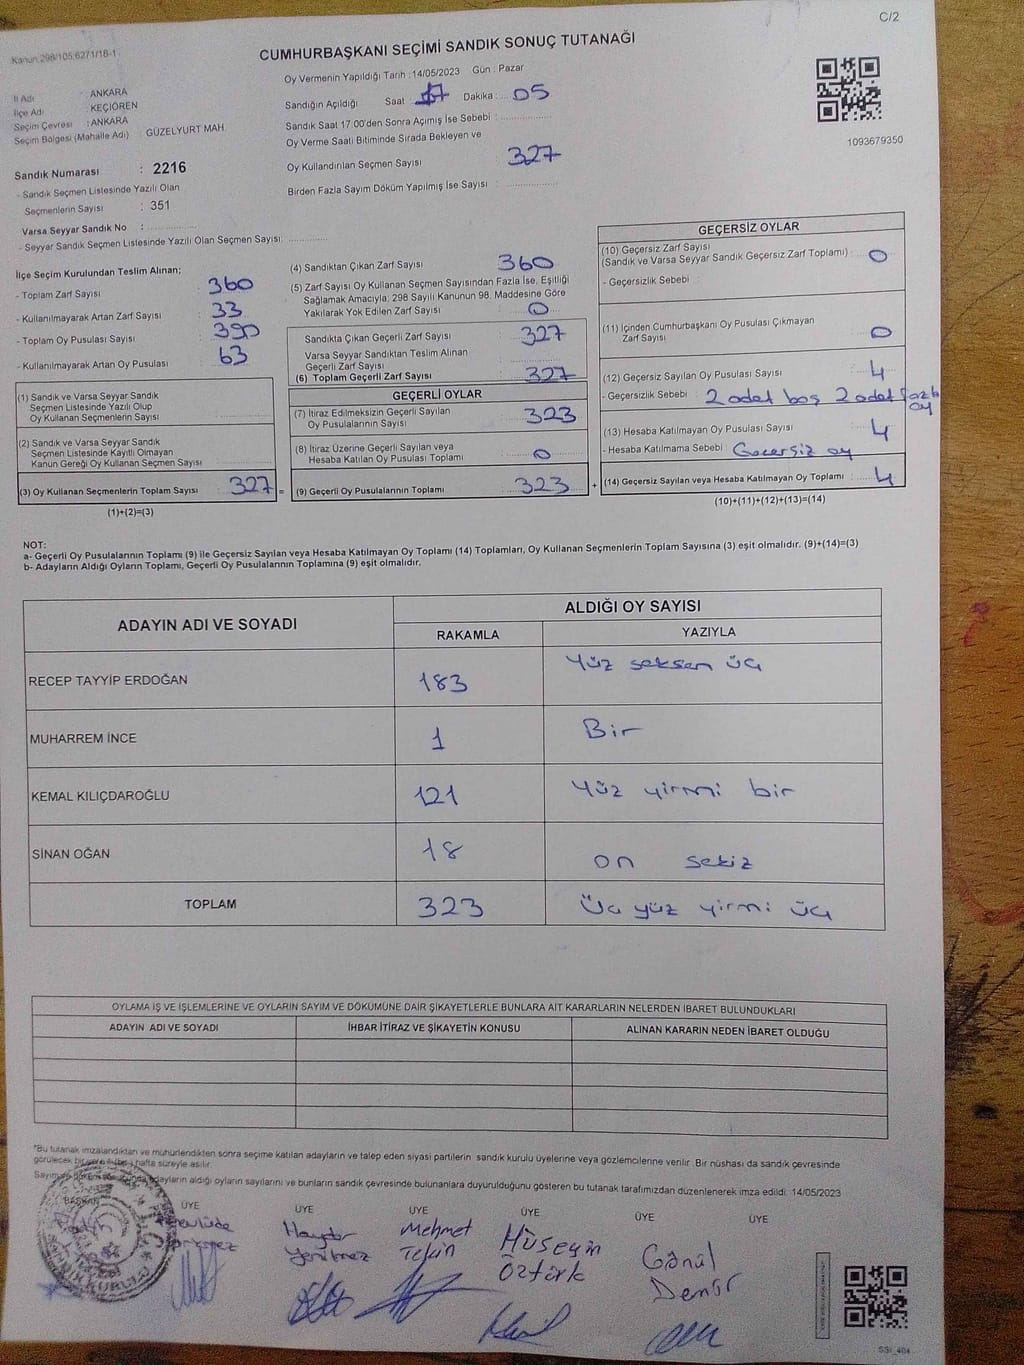 C/2
Kanun 298/105,6271/18-1
CUMHURBAŞKANI SEÇİMİ SANDIK SONUÇ TUTANAĞI
İl Adı : ANKARA
İlçe Adı : KEÇİÖREN
Seçim Çevresi : ANKARA
Seçim Bölgesi (Mahalle Adı) : GÜZELYURT MAH
Sandık Numarası : 2216
- Sandık Seçmen Listesinde Yazılı Olan
Seçmenlerin Sayısı : 351
Varsa Seyyar Sandık No :
- Seyyar Sandık Seçmen Listesinde Yazılı Olan Seçmen Sayısı:
Oy Vermenin Yapıldığı Tarih : 14/05/2023 Gün : Pazar
Sandığın Açıldığı Saat 17 Dakika : 05
Sandık Saat 17.00'den Sonra Açımış İse Sebebi :
Oy Verme Saati Bitiminde Sırada Bekleyen ve
Oy Kullandırılan Seçmen Sayısı 327
Birden Fazla Sayım Döküm Yapılmış İse Sayısı :
1093679350
İlçe Seçim Kurulundan Teslim Alınan;
- Toplam Zarf Sayısı : 360
- Kullanılmayarak Artan Zarf Sayısı : 33
- Toplam Oy Pusulası Sayısı : 390
- Kullanılmayarak Artan Oy Pusulası : 63
(1) Sandık ve Varsa Seyyar Sandık
Seçmen Listesinde Yazılı Olup
Oy Kullanan Seçmenlerin Sayısı
(2) Sandık ve Varsa Seyyar Sandık
Seçmen Listesinde Kayıtlı Olmayan
Kanun Gereği Oy Kullanan Seçmen Sayısı
(3) Oy Kullanan Seçmenlerin Toplam Sayısı 327 =
(1)+(2)=(3)
(4) Sandıktan Çıkan Zarf Sayısı 360
(5) Zarf Sayısı Oy Kullanan Seçmen Sayısından Fazla İse, Eşitliği
Sağlamak Amacıyla; 298 Sayılı Kanunun 98. Maddesine Göre
Yakılarak Yok Edilen Zarf Sayısı : 0
Sandıkta Çıkan Geçerli Zarf Sayısı : 327
Varsa Seyyar Sandıktan Teslim Alınan
Geçerli Zarf Sayısı :
(6) Toplam Geçerli Zarf Sayısı : 327
GEÇERLİ OYLAR
(7) İtiraz Edilmeksizin Geçerli Sayılan
Oy Pusulalarının Sayısı : 323
(8) İtiraz Üzerine Geçerli Sayılan veya
Hesaba Katılan Oy Pusulası Toplamı : 0
(9) Geçerli Oy Pusulalarının Toplamı : 323 +
GEÇERSİZ OYLAR
(10) Geçersiz Zarf Sayısı
(Sandık ve Varsa Seyyar Sandık Geçersiz Zarf Toplamı) : 0
- Geçersizlik Sebebi :
(11) İçinden Cumhurbaşkanı Oy Pusulası Çıkmayan
Zarf Sayısı : 0
(12) Geçersiz Sayılan Oy Pusulası Sayısı : 4
- Geçersizlik Sebebi : 2 adet boş 2 adet fazla
oy
(13) Hesaba Katılmayan Oy Pusulası Sayısı : 4
- Hesaba Katılmama Sebebi Geçersiz oy
(14) Geçersiz Sayılan veya Hesaba Katılmayan Oy Toplamı : 4
(10)+(11)+(12)+(13)=(14)
NOT:
a- Geçerli Oy Pusulalarının Toplamı (9) ile Geçersiz Sayılan veya Hesaba Katılmayan Oy Toplamı (14) Toplamları, Oy Kullanan Seçmenlerin Toplam Sayısına (3) eşit olmalıdır. (9)+(14)=(3)
b- Adayların Aldığı Oyların Toplamı, Geçerli Oy Pusulalarının Toplamına (9) eşit olmalıdır.
ADAYIN ADI VE SOYADI ALDIĞI OY SAYISI
RAKAMLA YAZIYLA
RECEP TAYYİP ERDOĞAN 183 Yüz seksen üç
MUHARREM İNCE 1 Bir
KEMAL KILIÇDAROĞLU 121 Yüz yirmi bir
SİNAN OĞAN 18 on sekiz
TOPLAM 323 Üç yüz yirmi üç
OYLAMA İŞ VE İŞLEMLERİNE VE OYLARIN SAYIM VE DÖKÜMÜNE DAİR ŞİKAYETLERLE BUNLARA AİT KARARLARIN NELERDEN İBARET BULUNDUKLARI
ADAYIN ADI VE SOYADI İHBAR İTİRAZ VE ŞİKAYETİN KONUSU ALINAN KARARIN NEDEN İBARET OLDUĞU
*Bu tutanak imzalandıktan ve mühürlendikten sonra seçime katılan adayların ve talep eden siyasi partilerin sandık kurulu üyelerine veya gözlemcilerine verilir. Bir nüshası da sandık çevresinde
görülecek bir yere (bir) hafta süreyle asılır.
adayların aldığı oyların sayılarını ve bunların sandık çevresinde bulunanlara duyurulduğunu gösteren bu tutanak tarafımızdan düzenlenerek imza edildi. 14/05/2023
BAŞKAN ÜYE ÜYE ÜYE ÜYE ÜYE ÜYE
Haydar Yenilmez
Mehmet Tekin
Hüseyin Öztürk
Gönül Demir
SANDIK KURULU